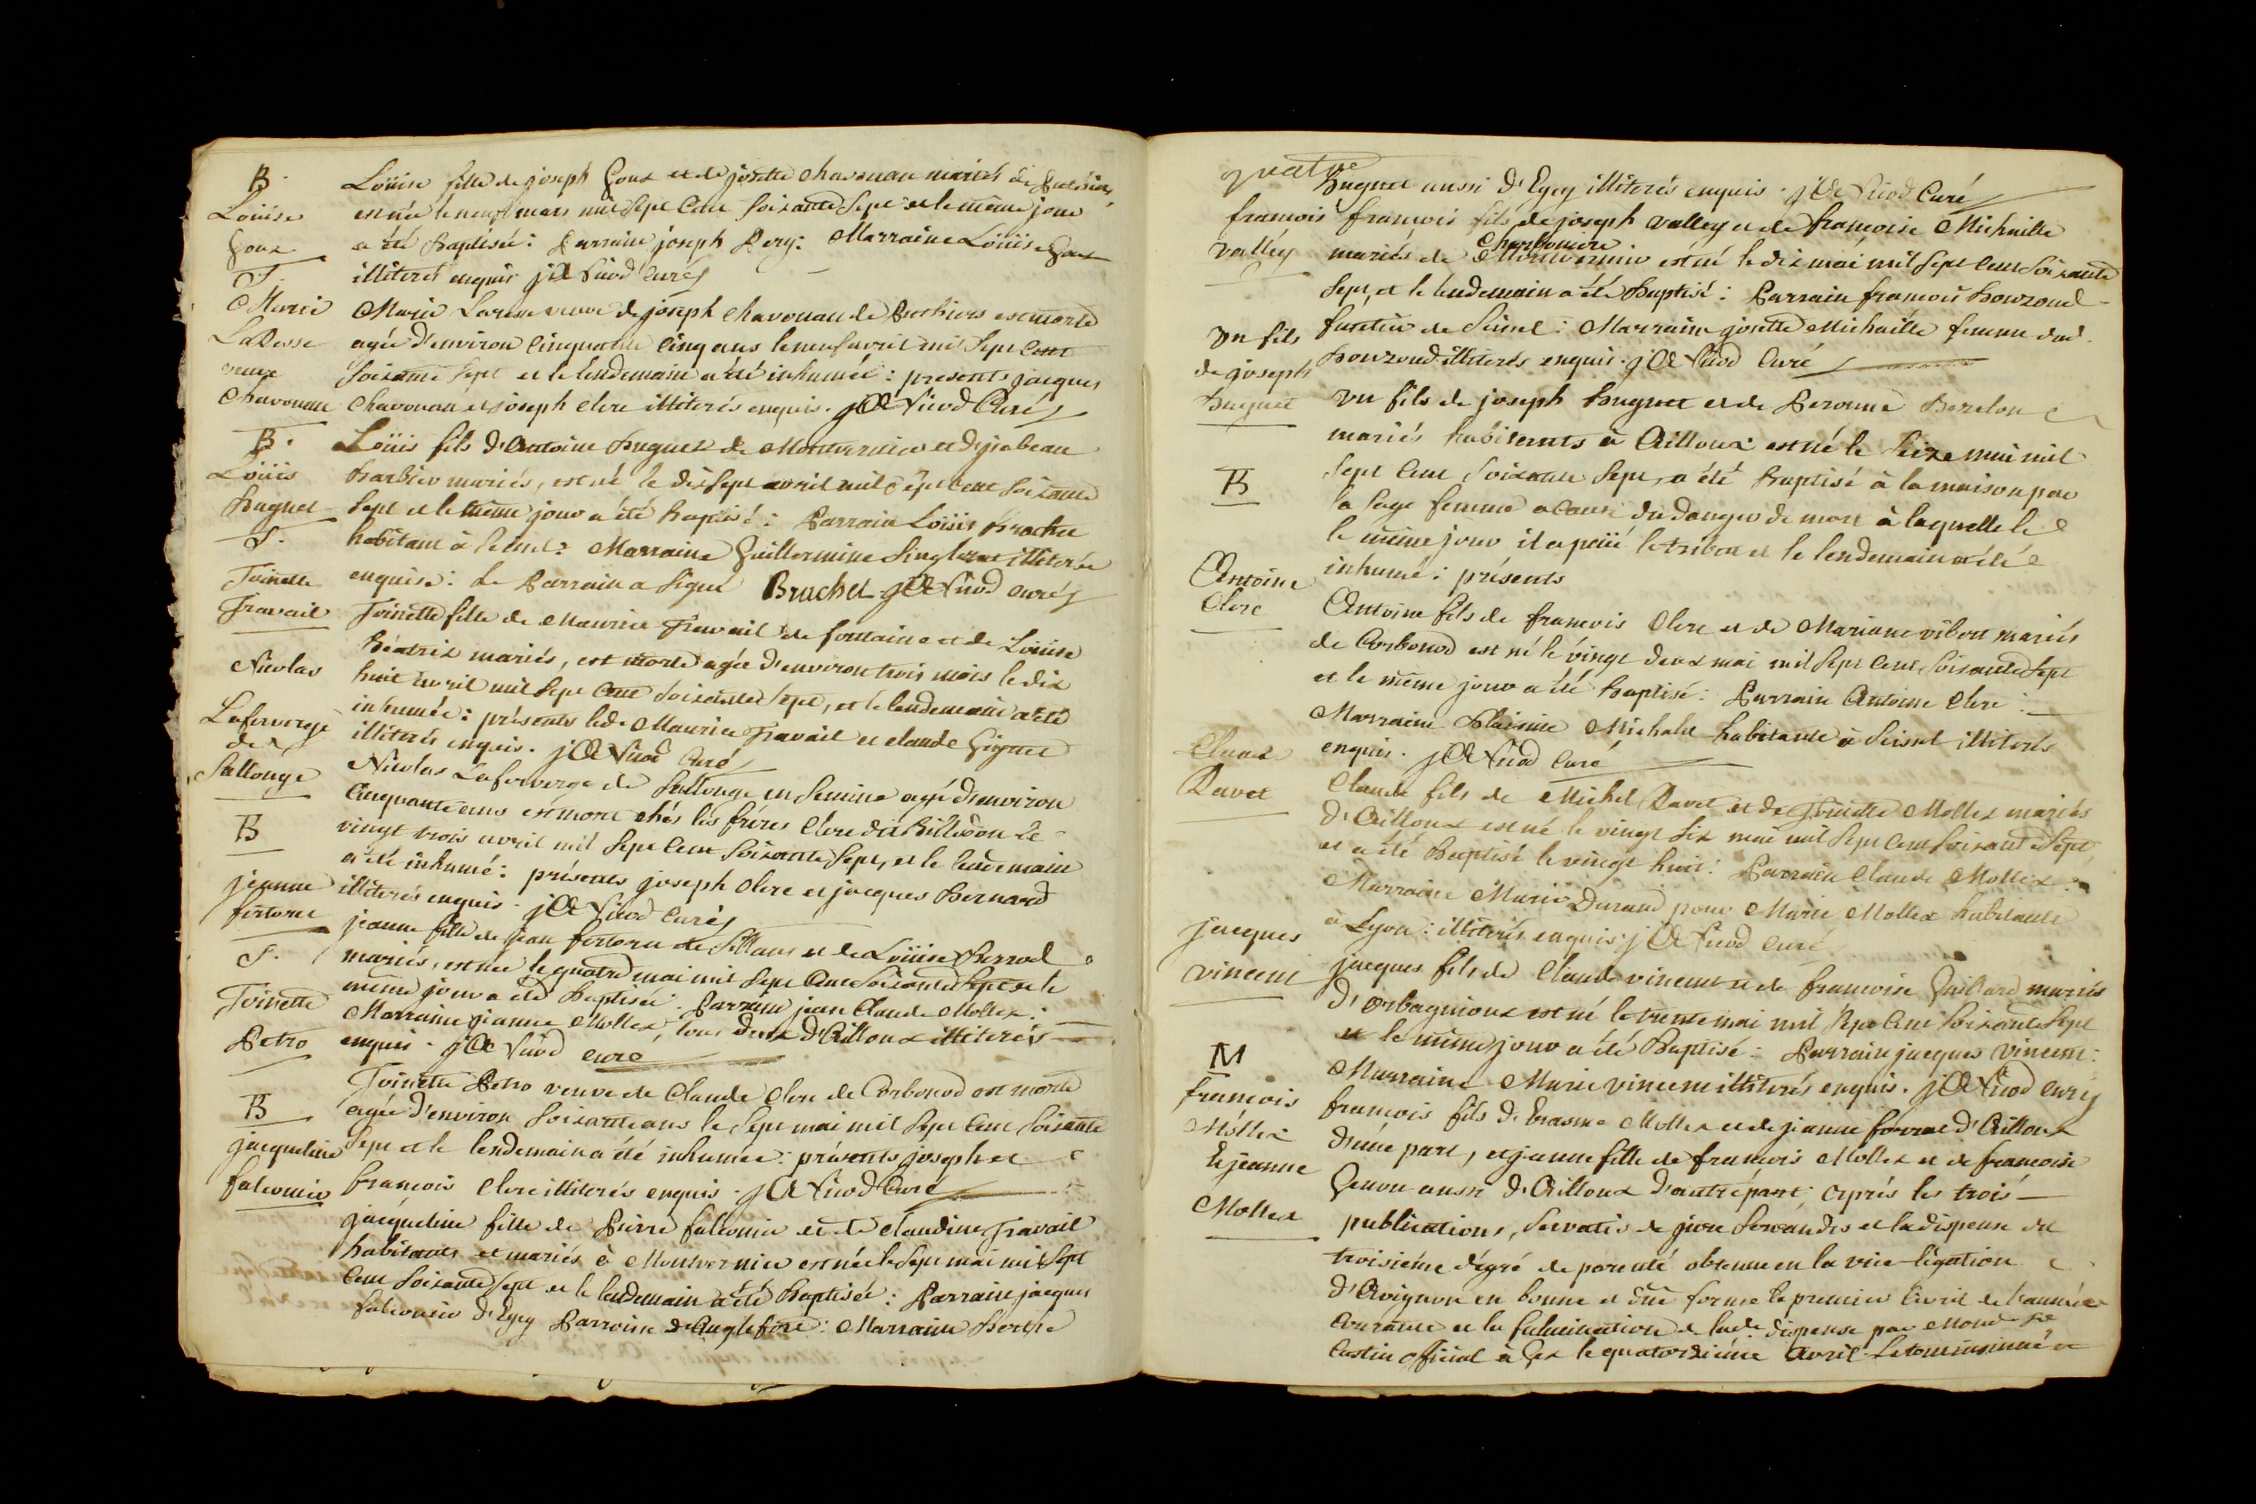 B.
Loüise
Goux
Loüise fille de joseph Goux et de josette chavonau mariés de
est née le neuf mars mil sept Cent Soixante Sept et le même jour
a été Baptisée: Parrain joseph Pery: Marraine Loüise Goux
illiterés enquis jA Nicod Curé
S.
Marie
LaResse
veuve
Chavonau
Marie Laresse veuve de joseph chavonau de est morte
agée d'environ Cinquante Cinq ans le neuf avril mil Sept Cent
Soixante Sept et le lendemain a été inhumée: presents jacques
Chavonau et joseph Clerc illiterés enquis. jA Nicod Curé
B.
Loüis
Huguet
Loüis fils d'Antoine huguet de Montvernier et d'jsabeau
barbier mariés, est né le dix Sept avril mil Sept Cent Soixante
Sept et le même jour a été baptisé: Parrain Loüis Brachet
habitant à Seissel: Marraine Guillermine illiterée
enquise: Le Parrain a Signé Brachet jA Nicod curé
S.
Toinette
Travail
Toinette fille de Maurice Travail de fontaine et de Loüise
béatrix mariés, est morte agée d'environ trois mois le dix
huit avril mil Sept Cent Soixante Sept, et le lendemain a été
inhumée: présents led. Maurice Travail et claude
illiterés enquis. jA Nicod Curé
Nicolas
Laferverge
de
Sallonge
Nicolas Laferverge de Sallonge en Semine agé d'environ
Cinquante ans est mort chés les fréres Clerc dit Billiedon Le
vingt trois avril mil Sept Cent Soixante Sept, et le lendemain
a été inhumé: présents joseph Clerc et jacques bernard
illiterés enquis. jA Nicod Curé
B
jeanne
fertoret
jeanne fille de jean fertoret de et de Loüise
mariés, est née le quatre mai mil Sept Cent Soixante Sept et le
même jour a été Baptisée: Parrain jean Claude Mollex:
Marraine jeanne Mollex, tous deux d'Eilloux illiterés
enquis. jA Nicod curé
S.
Toinette
Petro
Toinette Petro veuve de Claude Clerc de Corbonod est morte
agée d'environ Soixante ans le Sept mai mil Sept Cent Soixante
Sept et le lendemain a été inhumée: présents joseph et
françois Clerc illiterés enquis. jA Nicod Curé
B
jacqueline
falconier
jacqueline fille de Pierre falconier et de Claudine Travail
habitants et mariés à Montvernier est née le Sept mai mil Sept
Cent Soixante Sept et le lendemain a été Baptisée: Parrain jacques
falconier d'Egey Parroisse d'Anglefort: Marraine
quatre
huguet aussi d'Egey illiterés enquis. jA Nicod Curé
francois
valléy
francois fils de joseph valley et de francoise Michaille
Charbonniere
mariés de est né le dix mai mil Sept Cent Soixante
Sept, et le lendemain a été Baptisé: Parrain francois
de Seissel: Marraine josette Michaille femme dud.
illiterés enquis. jA Nicod Curé
Un fils
de joseph
huguet
Un fils de joseph huguet et de Peronne
mariés habitants à Eilloux est né le Seize mai mil
Sept Cent Soixante Sept, a été Baptisé à la maison par
la Sage femme a Cause du danger de mort à laquelle le
le même jour il a païé le tribut et le lendemain a été
inhumé: présents
B
Antoine
Clerc
Antoine fils de francois Clerc et de Mariane vibert mariés
de Corbonod est né le vingt deux mai mil Sept Cent Soixante Sept
et le même jour a été Baptisé: Parrain Antoine Clerc:
Marraine Michalet habitante à Seissel illiterés
enquis. jA Nicod Curé
Claude
Ravet
Claude fils de Michel Ravet et de Toinette Mollex mariés
d'Eilloux est né le vingt Six mai mil Sept Cent Soixante Sept
et a été Baptisé le vingt huit: Parrain Claude Mollex:
Marraine Marie Durand pour Marie Mollex habitante
à Lyon: illiterés enquis jA Nicod Curé
jacques
vincent
jacques fils de Claude vincent et de francoise Gaillard mariés
d'Orbagnioux est né le trente mai mil Sept Cent Soixante Sept
et le même jour a été Baptisé: Parrain jacques vincent:
Marraine Marie vincent illiterés enquis. jA Nicod Curé
M
francois
Mollex
Et jeanne
Mollex
francois fils d'Erasme Mollex et de jeanne d'Eilloux
d'une part, et jeanne fille de francois Mollex et de francoise
Genou aussi d'Eilloux d'autre part: après les trois
publications, Servatis de jure Servandis et la dispense du
troisiéme dégré de parenté obtenue en la vice-légation
d'Avignon en bonne et düe forme le premier Avril de l'année
Courante et la fulmination de lade. dispense par Monsr.
Castin official à Gex le quatorziéme Avril